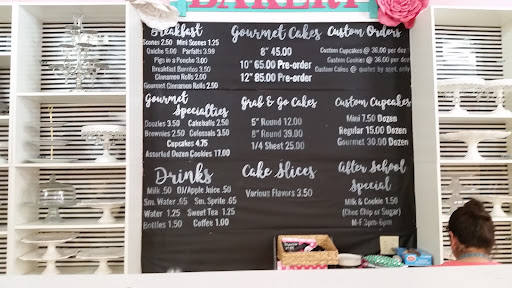 BAKERY
Breakfast
Scones 2.50 Mini Scones 1.25
Quiche 5.00 Parfaits 3.99
Pigs in a Poncho 3.00
Breakfast Burritos 3.50
Cinnamon Rolls 2.00
Gourmet Cinnamon Rolls 2.50
Gourmet
Specialties
Doozies 3.50 Cakeballs 2.50
Brownies 2.50 Colossals 3.50
Cupcakes 4.75
Assorted Dozen Cookies 17.00
Drinks
Milk .50 OJ/Apple Juice .50
Sm. Water .65 Sm. Sprite .65
Water 1.25 Sweet Tea 1.25
Bottles 1.50 Coffee 1.00
Gourmet Cakes
8" 45.00
10" 65.00 Pre-order
12" 85.00 Pre-order
Grab & Go Cakes
5" Round 12.00
8" Round 39.00
1/4 Sheet 25.00
Cake Slices
Various Flavors 3.50
Custom Orders
Custom Cupcakes @ 36.00 per dez
Custom Cookies @ 36.00 per dez
Custom Cakes @ quotes by appt. only
Custom Cupcakes
Mini 7.50 Dozen
Regular 15.00 Dozen
Gourmet 30.00 Dozen
After School
Special
Milk & Cookie 1.50
(Choc Chip or Sugar)
M-F 3pm-6pm